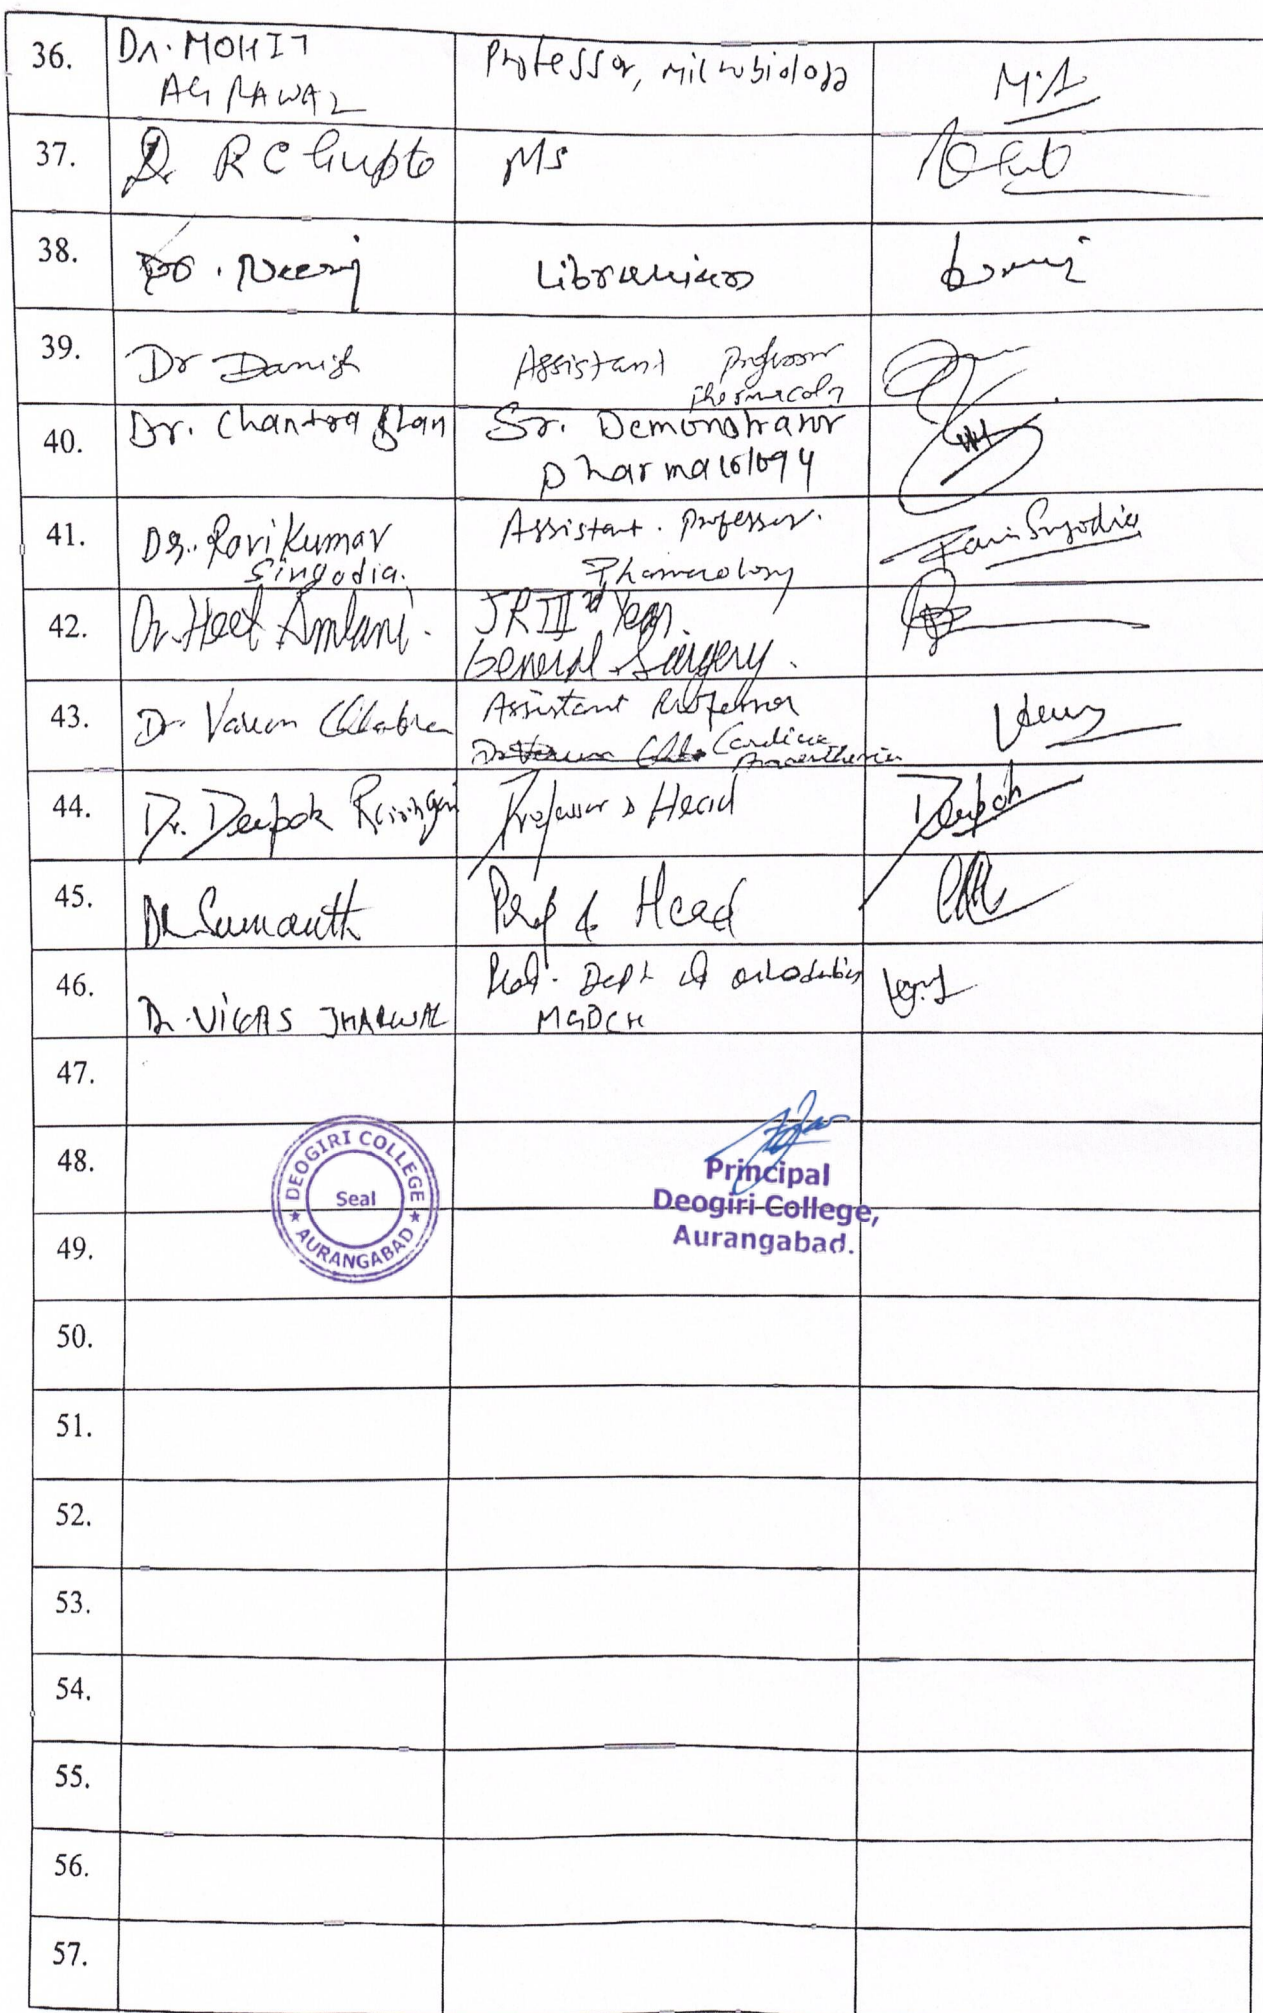 36.
Dr. MOHIT
AGRAWAL
Professor, Microbiology
M.A
37.
Dr R C Gupta
MS
38.
Dr. Neeraj
Librarian
39.
Dr Danish
Assistant Professor
Pharmacology
40.
Dr. Chandra Bhan
Sr. Demonstrator
Pharmacology
41.
Dr. Ravi Kumar
Singodia.
Assistant. Professor.
Pharmacology
Ravi Singodia
42.
Dr. Heet Amlani.
JR III rd Year.
General Surgery.
43.
Dr Varun Chhabra
Assistant Professor
Cardiac
Anaesthesia
44.
Dr. Deepak
Professor & Head
Deepak
45.
Dr Sumanth
Prof & Head
46.
Dr. VIKAS JHARWAL
Prof. Dept of Orthodontics
MGDCH
47.
48.
DEOGIRI COLLEGE
Seal
★ AURANGABAD ★
Principal
Deogiri College,
Aurangabad.
49.
50.
51.
52.
53.
54.
55.
56.
57.